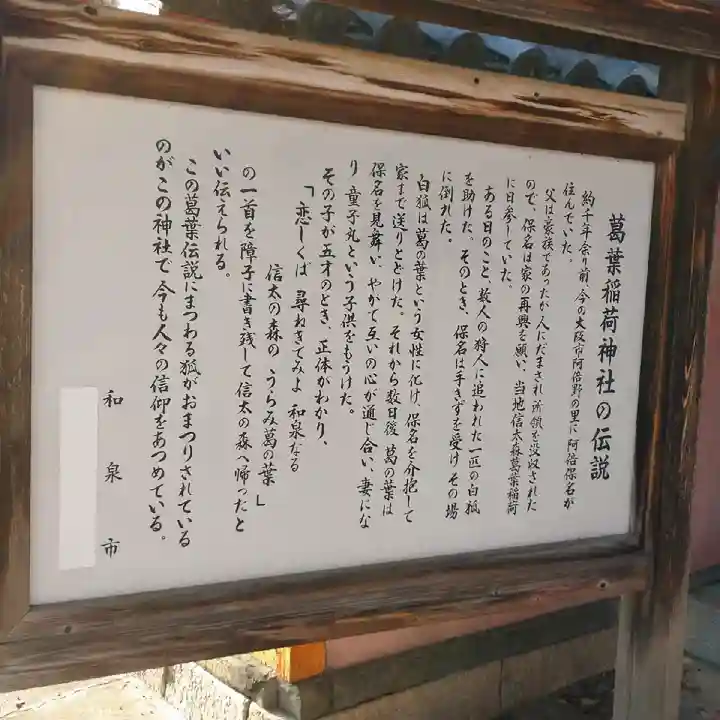 葛葉稲荷神社の伝説
約千年余り前、今の大阪市阿倍野の里に阿倍保名が
住んでいた。
父は豪族であったが人にだまされ所領を没収された
ので、保名は家の再興を願い、当地信太森葛葉稲荷
に日参していた。
ある日のこと、数人の狩人に追われた一匹の白狐
を助けた。そのとき、保名は手きずを受け その場
に倒れた。
白狐は葛の葉という女性に化け、保名を介抱して
家まで送りとどけた。それから数日後 葛の葉は
保名を見舞い、やがて互いの心が通じ合い、妻にな
り 童子丸という子供をもうけた。
その子が五才のとき、正体がわかり、
「恋しくば 尋ねきてみよ 和泉なる
信太の森の うらみ葛の葉」
の一首を障子に書き残して信太の森へ帰ったと
いい伝えられる。
この葛葉伝説にまつわる狐がおまつりされている
のがこの神社で今も人々の信仰をあつめている。
和泉市